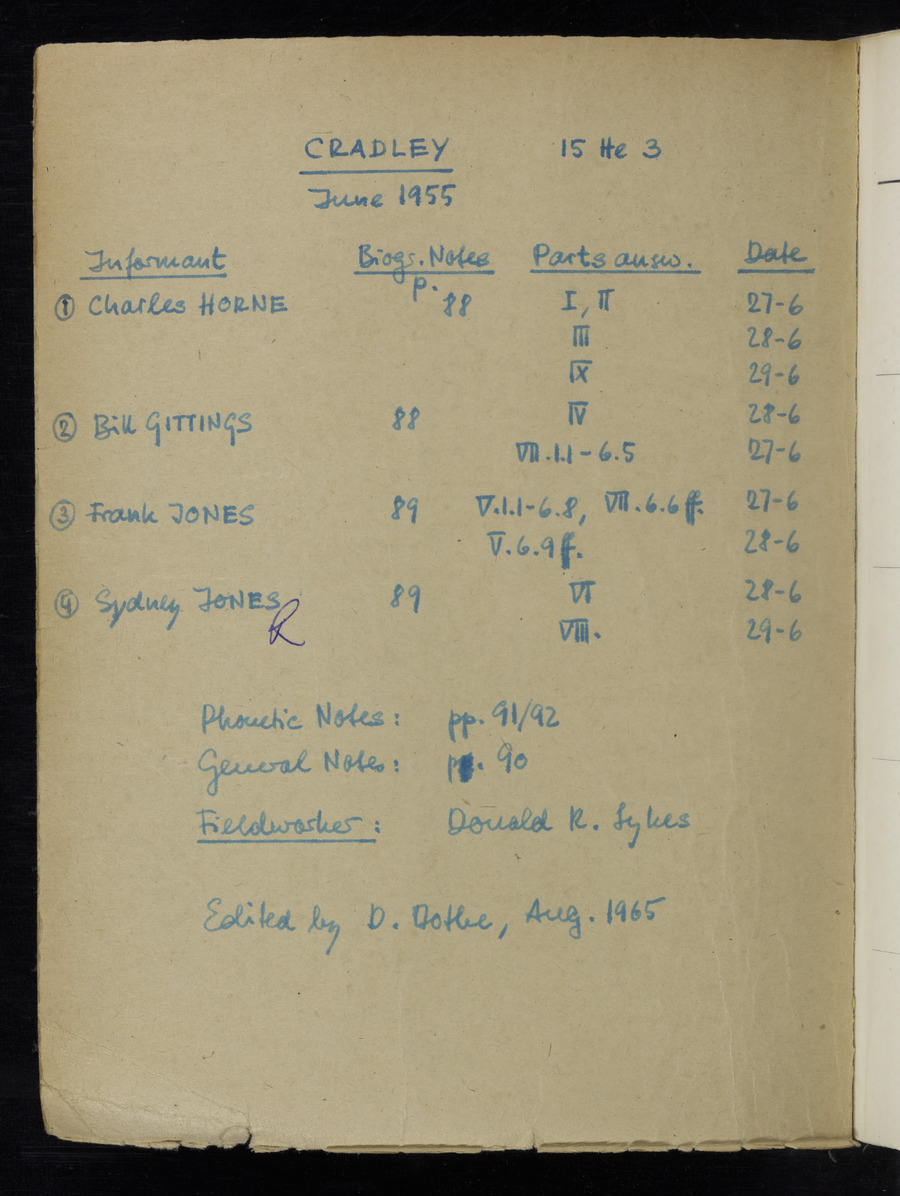 CRADLEY 15 He 3
June 1955
Informant Biogr. Notes Parts answ. Date
① Charles HORNE p. 88 I, II 27-6
III 28-6
IX 29-6
② Bill GITTINGS 88 IV 28-6
VII.1.1-6.5 27-6
③ Frank JONES 89 V.1.1-6.8, VII.6.6ff. 27-6
V.6.9ff. 28-6
④ Sydney JONES 89 VI 28-6
R VIII. 29-6
Phonetic Notes: pp. 91/92
General Notes: p. 90
Fieldworker: Donald R. Sykes
Edited by D. Aug. 1965